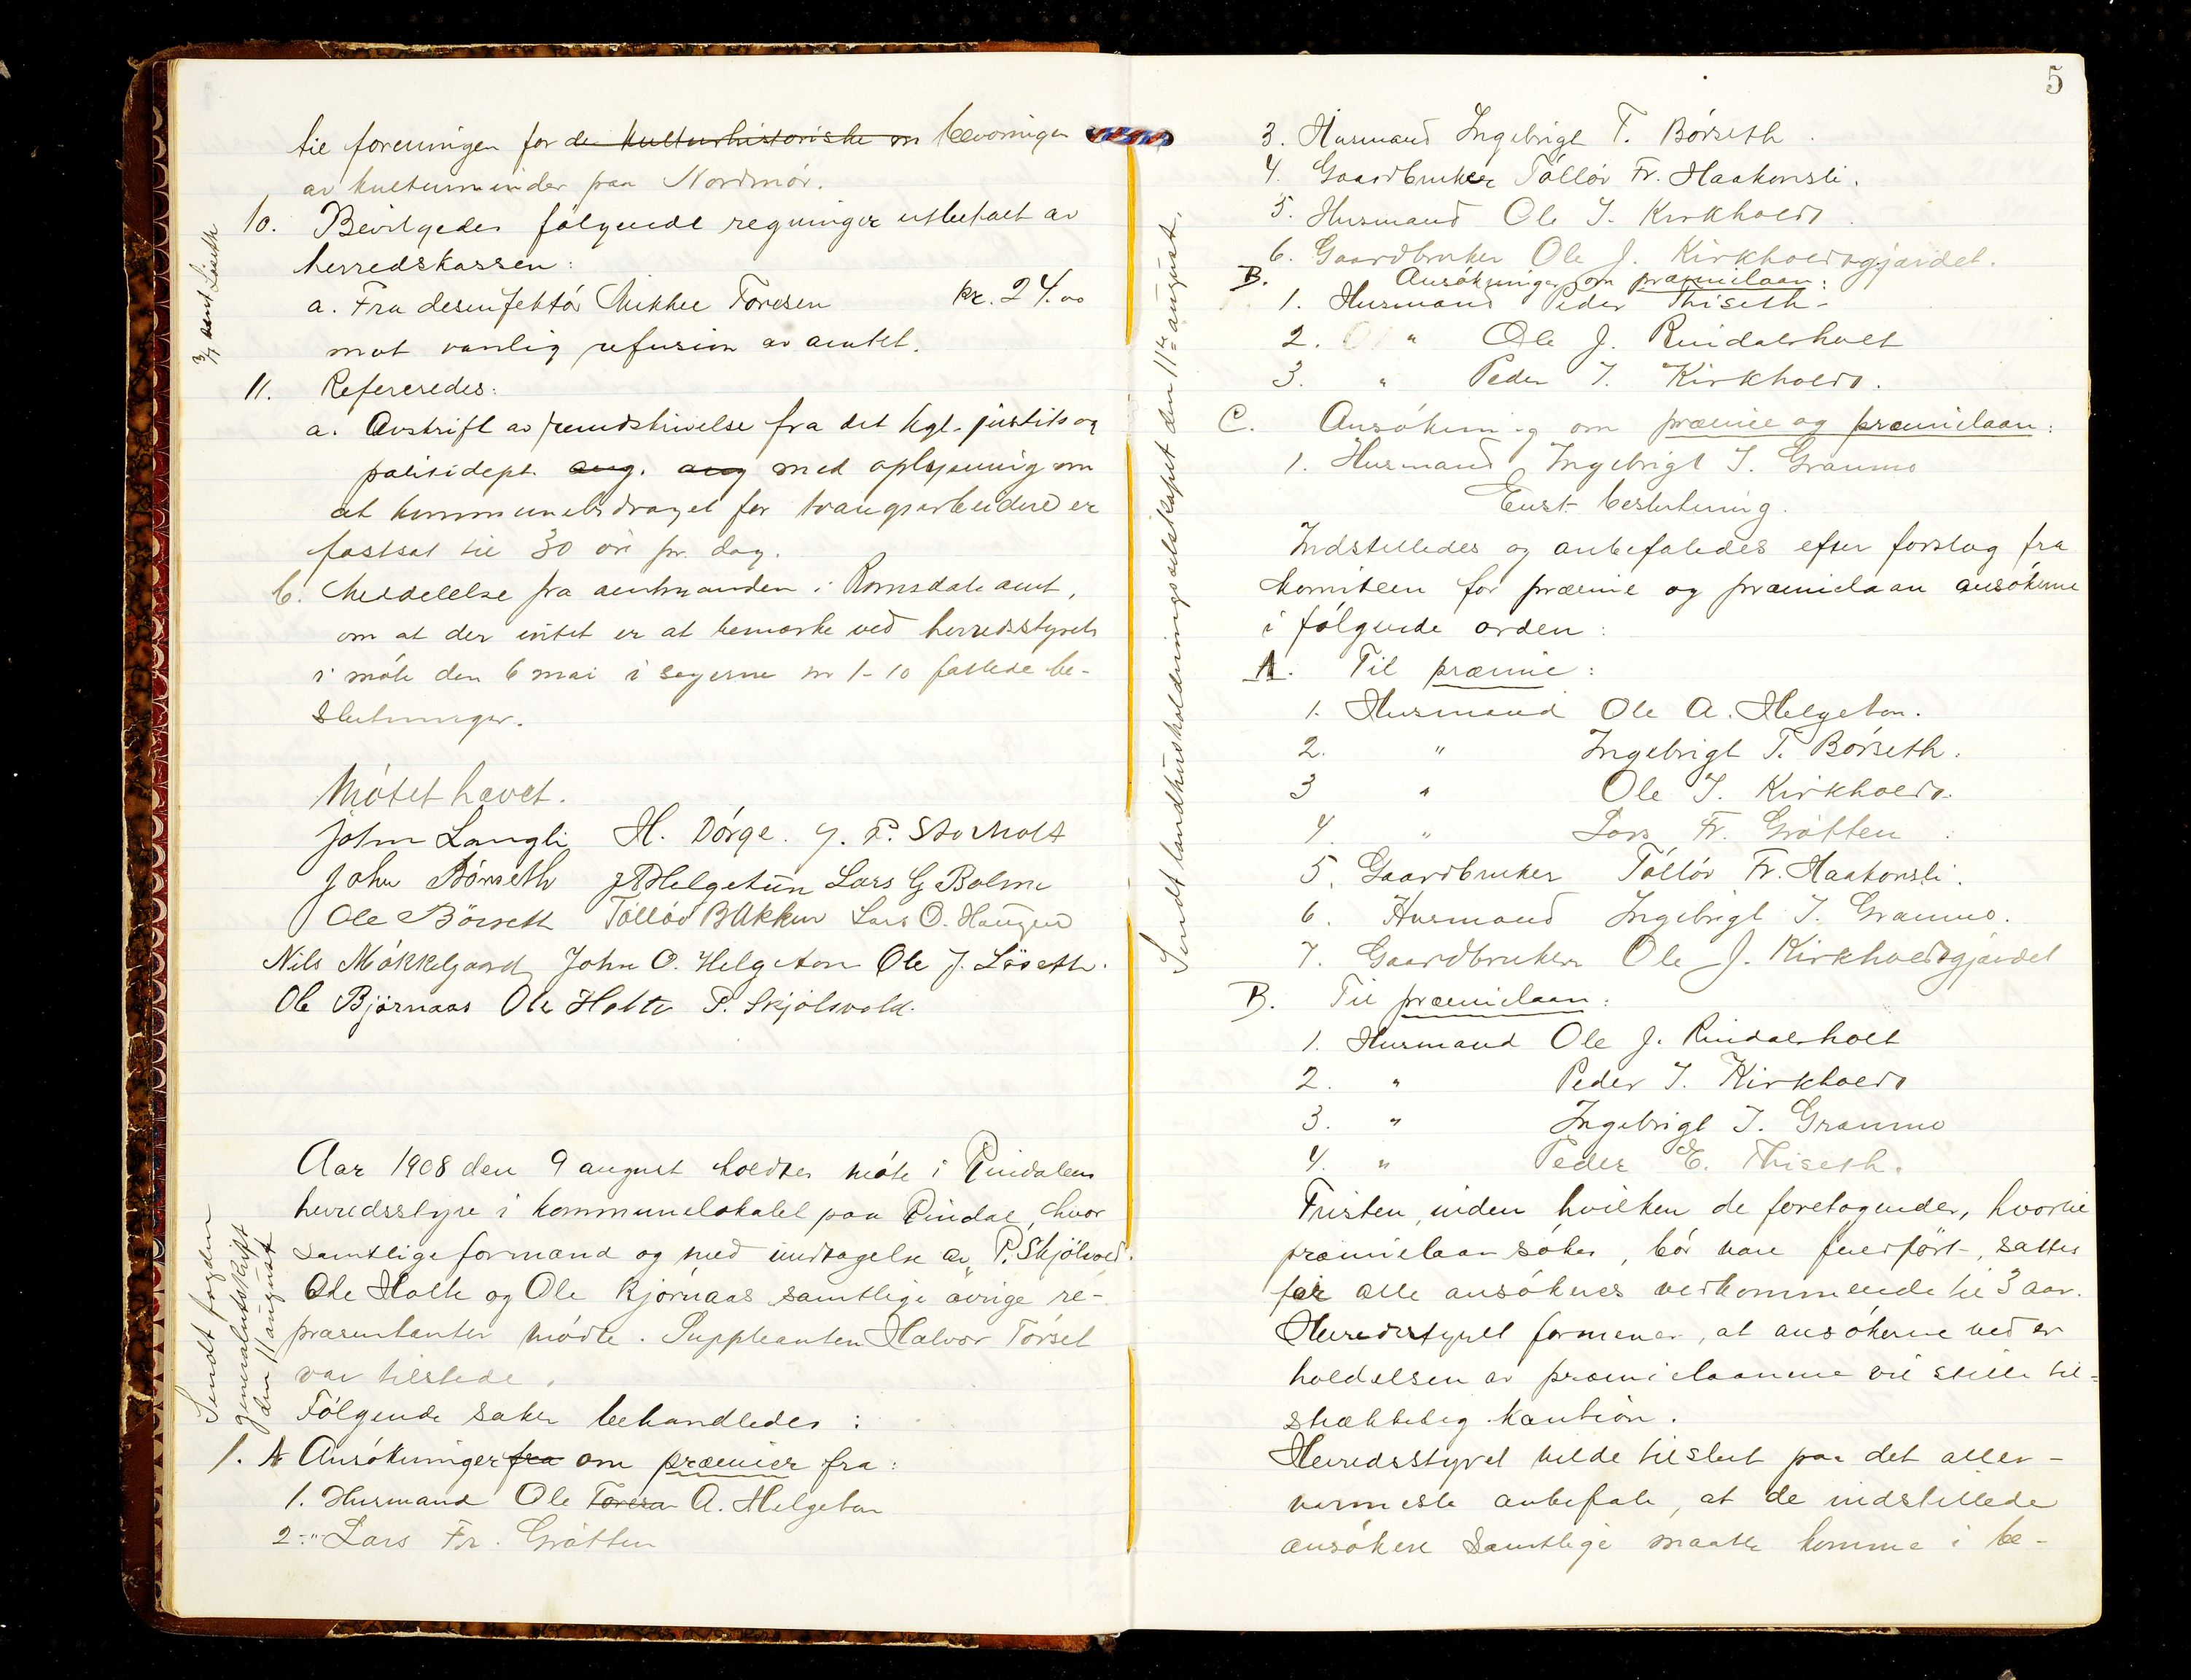 til foreningen for de kulturhistoriske m bevaringen
av kulturminder paa Nordmör.
10. Bevilgedes følgende regninger utbetalt av
herredskassen:
a. Fra desenfektör Mikkel Toresen kr. 24.00
mot vanlig refusion av amtet.
3/7 sent Löseth
11. Refereredes:
a. Avskrift av rundskrivelse fra det kgl. justits og
politidept. ang. ang med oplysning om
at kommunebidraget for tvangsarbeidere er
fastsat til 30 öre pr. dag.
b. Meddelelse fra amtmanden i Romsdals amt,
om at der intet er at bemærke ved herredsstyrets
i möte den 6 mai i sagerne nr 1-10 fattede be-
slutninger.
Mötet hævet.
John Langli H. Dörge. J. P. Storholt
John Börseth J A Helgetun Lars G Bolme
Ole Börseth Tollöv Bakken Lars O. Haugen
Nils Mökkelgaard John O. Helgeton Ole J. Löseth.
Ole Björnaas Ole Holte P. Skjölsvold.
Aar 1908 den 9 august holdtes möte i Rindalens
herredsstyre i kommunelokalet paa Rindal, hvor
samtlige formænd og med undtagelse av P. Skjölsvold
Ole Holte og Ole Bjørnaas samtlige övrige re-
præsentanter mödte. Suppleanten Halvor Törset
var tilstede.
Fölgende saker behandledes:
Sendt fogden
generalutskrift
den 11 august
1. A Ansökninger fra om præmier fra:
1. Husmand Ole Toresen A. Helgeton
2. " Lars Fr. Grötten
5
3. Husmand Ingebrigt T. Börseth.
4. Gaardbruker Tollöv Fr. Haakonsli.
5. Husmand Ole I. Kirkholdt.
6. Gaardbruker Ole J. Kirkholdtsgjærdet.
B. Ansökninger om præmielaan:
1. Husmand Peder Thiseth-
2. " Ole J. Rindalsholt
3. " Peder I. Kirkholdt.
C. Ansökning om præmie og præmielaan:
1. Husmand Ingebrigt I. Granmo
Enst beslutning.
Sendt landhusholdningsselskapet den 11te august.
Indstilledes og anbefaledes efter forslag fra
komiteen for præmie og præmielaan ansökerne
i følgende orden:
A. Til præmie:
1. Husmand Ole A. Helgeton.
2. " Ingebrigt T. Börseth.
3 " Ole I. Kirkholdt.
4. " Lars Fr. Grötten.
5. Gaardbruker Tollöv Fr. Haakonsli.
6. Husmand Ingebrigt I. Granmo.
7. Gaardbruker Ole J. Kirkholdtsgjærdet
B. Til præmielaan:
1. Husmand Ole J. Rindalsholt
2. " Peder I. Kirkholdt
3. " Ingebrigt I. Granmo
4. " Peder E. Thiseth.
Fristen, inden hvilken de foretagender, hvortil
præmielaan sökes, bör være fuldfört, sattes
for alle ansökeres vedkommende til 3 aar.
Herredsstyret formener, at ansökerne ved er
holdelsen av præmielaanene vil stille til-
strækkelig kaution.
Herredsstyret vilde tilslut paa det aller-
varmeste anbefale, at de indstillede
ansökere samtlige maatte komme i be-